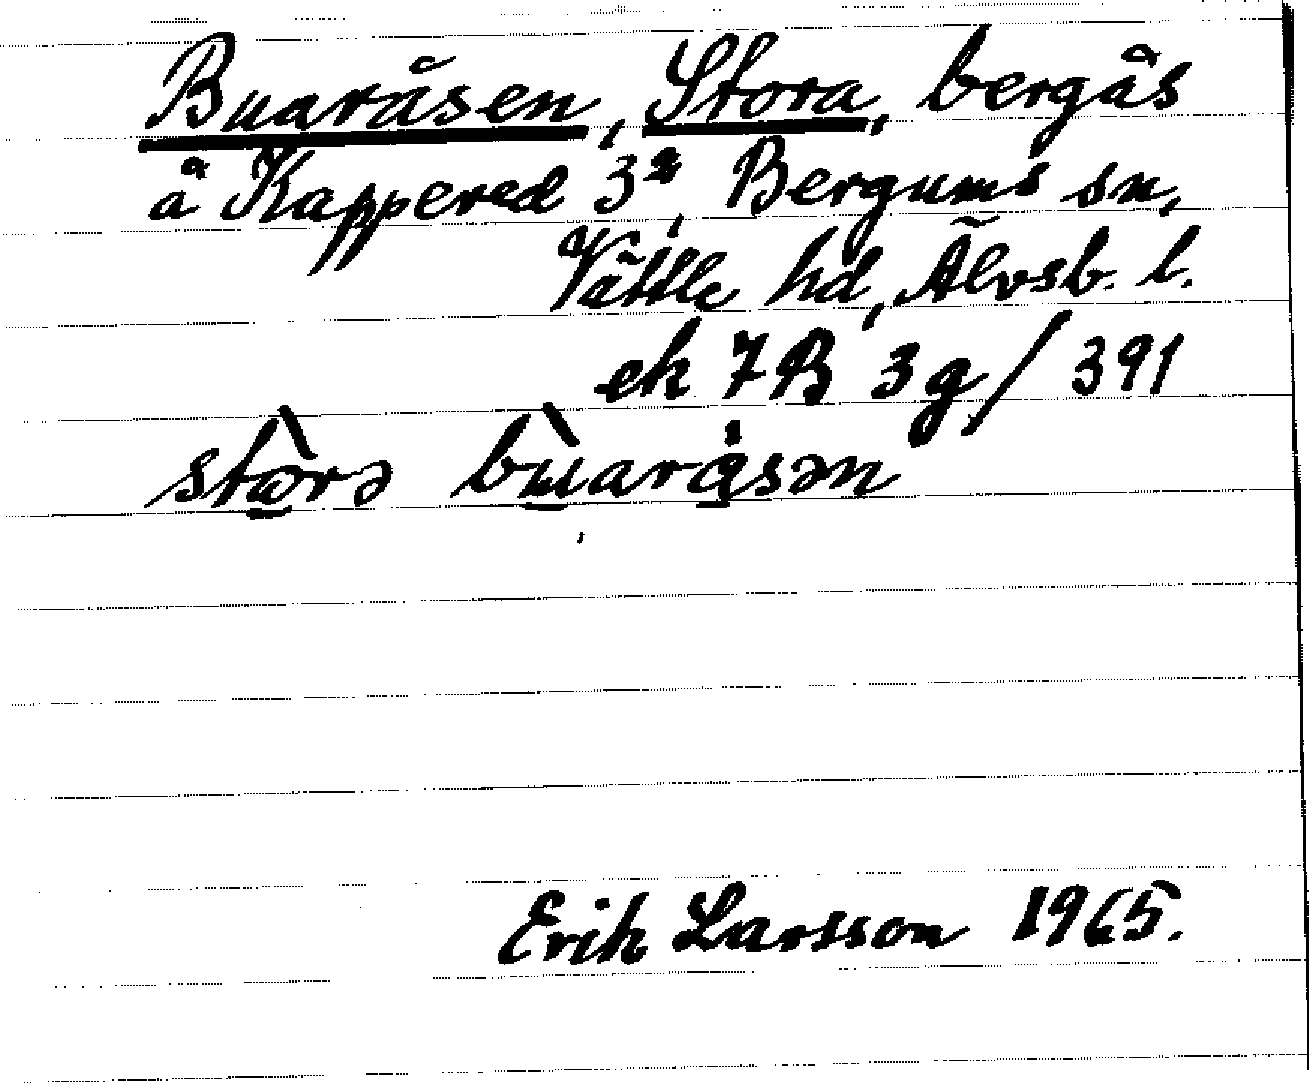 Buaråsen, Stora, bergås
å Kappered 3², Bergums sn,
Vättle hd, Älvsb. l.
ek 7B 3g/391
stòrə bùaråsən
Erik Larsson 1965.